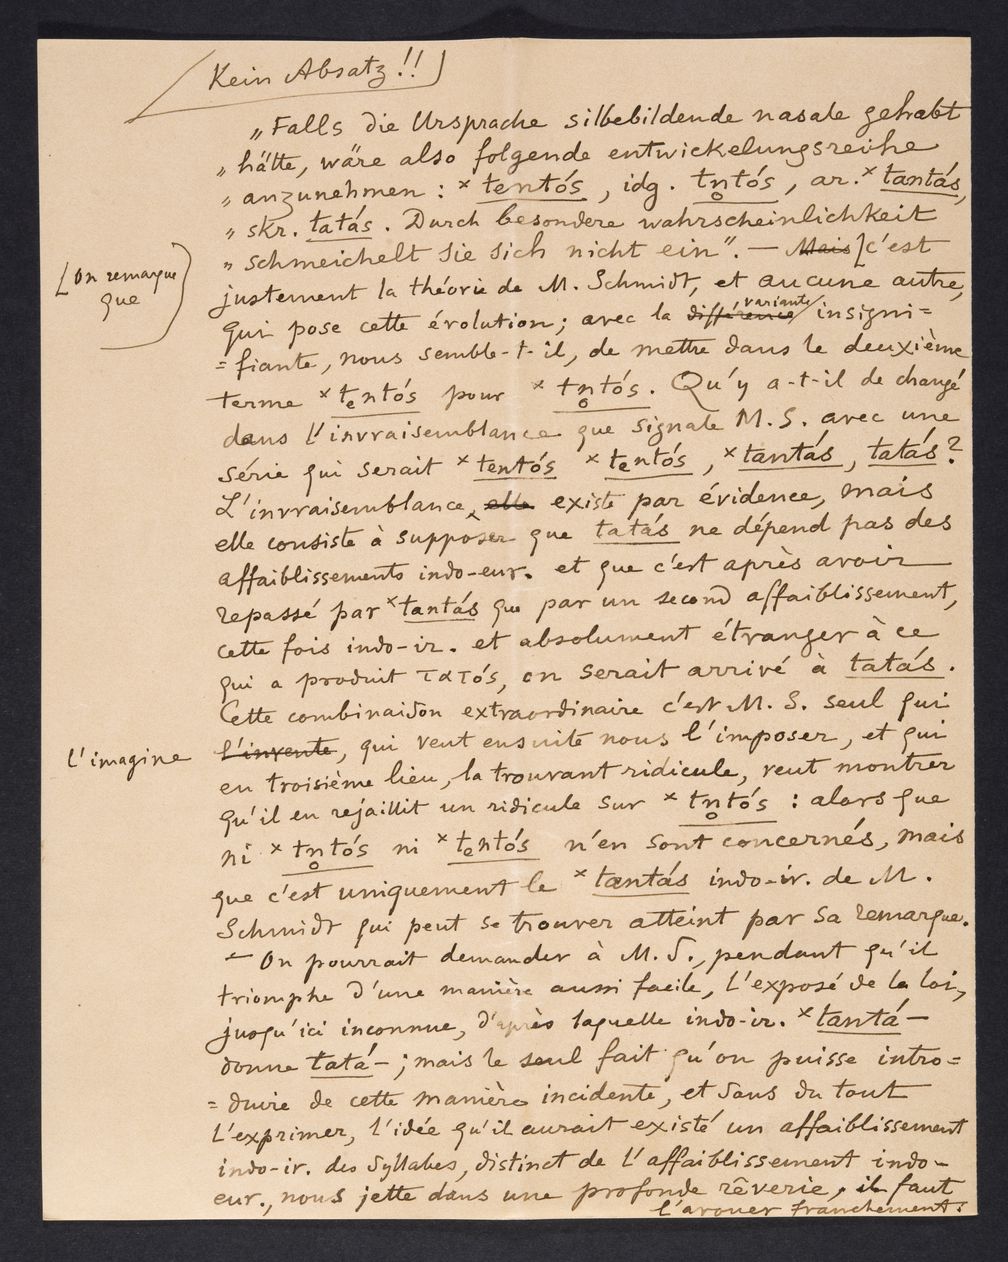 Kein Absatz!!
„Falls die Ursprache silbebildende nasale gehabt
„hätte, wäre also folgende entwickelungsreihe
„anzunehmen : ˣ tentós, idg. tn̥tós, ar. ˣ tantás,
„skr. tatás. Durch besondere wahrscheinlichkeit
„schmeichelt sie sich nicht ein". — Mais [c'est
[On remarque
que
justement la théorie de M. Schmidt, et aucune autre,
qui pose cette évolution; avec la différence variante insigni=
=fiante, nous semble-t-il, de mettre dans le deuxième
terme ˣ tₑntós pour ˣ tn̥tós. Qu'y a-t-il de changé
dans l'invraisemblance que signale M. S. avec une
série qui serait ˣ tentós ˣ tₑntós, ˣ tantás, tatás?
L'invraisemblance, elle existe par évidence, mais
elle consiste à supposer que tatás ne dépend pas des
affaiblissements indo-eur. et que c'est après avoir
repassé par ˣ tantás que par un second affaiblissement,
cette fois indo-ir. et absolument étranger à ce
qui a produit τατός, on serait arrivé à tatás.
Cette combinaison extraordinaire c'est M. S. seul qui
l'imagine
l'invente, qui veut ensuite nous l'imposer, et qui
en troisième lieu, la trouvant ridicule, veut montrer
qu'il en rejaillit un ridicule sur ˣ tn̥tós : alors que
ni ˣ tn̥tós ni ˣ tₑntós n'en sont concernés, mais
que c'est uniquement le ˣ tantás indo-ir. de M.
Schmidt qui peut se trouver atteint par sa remarque.
— On pourrait demander à M. S., pendant qu'il
triomphe d'une manière aussi facile, l'exposé de la loi,
jusqu'ici inconnue, d'après laquelle indo-ir. ˣ tantá-
donne tatá-; mais le seul fait qu'on puisse intro=
=duire de cette manière incidente, et sans du tout
l'exprimer, l'idée qu'il aurait existé un affaiblissement
indo-ir. des syllabes, distinct de l'affaiblissement indo-
eur., nous jette dans une profonde rêverie, il faut
l'avouer franchement.